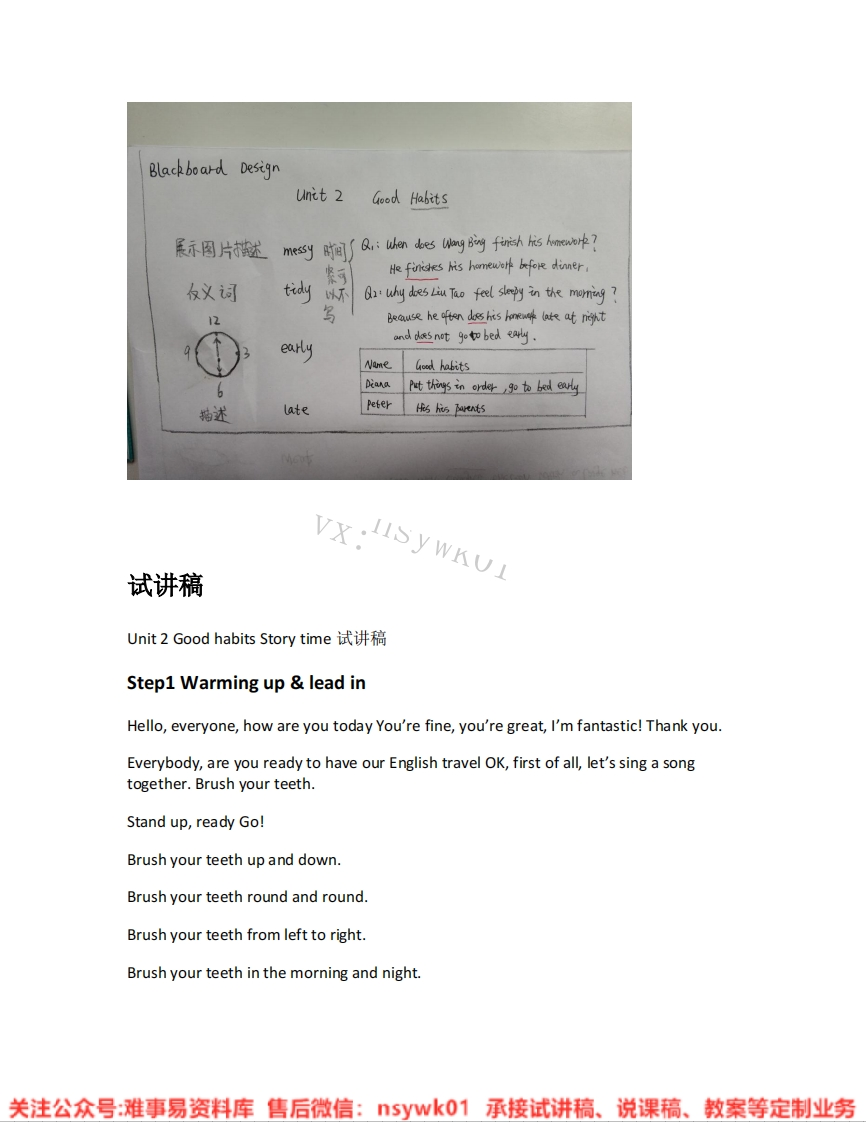 Blackboard Design
Unit 2 Good Habits
展示图片描述 messy 时间紧可以不写 Q1: When does Wang Bing finish his homework?
He finishes his homework before dinner.
反义词 tidy Q2: Why does Liu Tao feel sleepy in the morning?
Because he often does his homework late at night
and does not go to bed early.
12
9 3
6
early
描述 late
Name Good habits
Diana Put things in order, go to bed early
Peter his parents
VX:nsywk01
试讲稿
Unit 2 Good habits Story time 试讲稿
Step1 Warming up & lead in
Hello, everyone, how are you today You’re fine, you’re great, I’m fantastic! Thank you.
Everybody, are you ready to have our English travel OK, first of all, let’s sing a song
together. Brush your teeth.
Stand up, ready Go!
Brush your teeth up and down.
Brush your teeth round and round.
Brush your teeth from left to right.
Brush your teeth in the morning and night.
关注公众号:难事易资料库 售后微信：nsywk01 承接试讲稿、说课稿、教案等定制业务